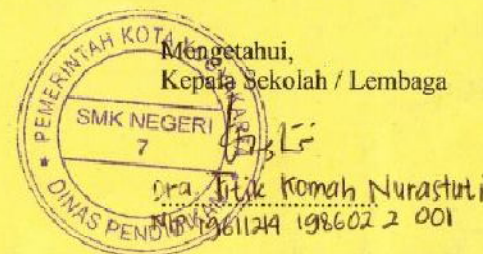 Mengetahui,
Kepala Sekolah / Lembaga
PEMERINTAH KOTA YOGYAKARTA
SMK NEGERI
7
DINAS PENDIDIKAN
Dra. Titik Komah Nurastuti
NIP 19611214 198602 2 001